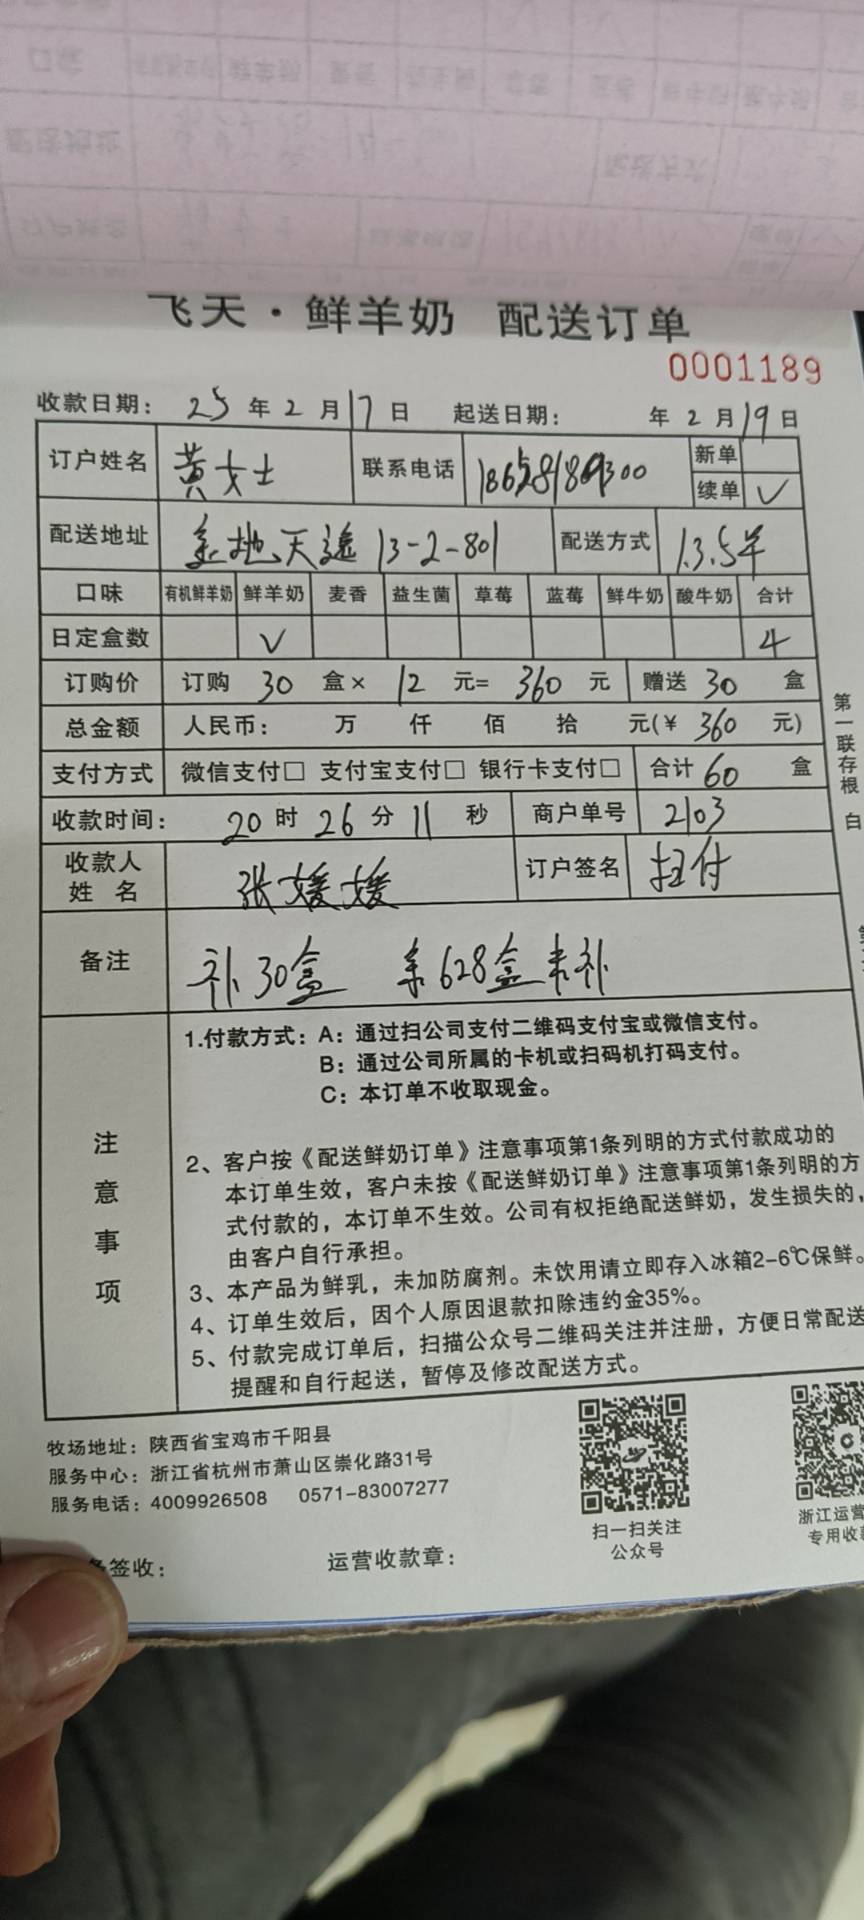 飞天·鲜羊奶 配送订单
0001189
收款日期: 25 年 2 月 17 日 起送日期: 年 2 月 19 日
订户姓名 黄女士 联系电话 新单
续单 ✓
配送地址 天逸 13-2-801 配送方式 1.3.5早
口味 有机鲜羊奶 鲜羊奶 麦香 益生菌 草莓 蓝莓 鲜牛奶 酸牛奶 合计
日定盒数 ✓ 4
订购价 订购 30 盒× 12 元= 360 元 赠送 30 盒
总金额 人民币: 万 仟 佰 拾 元(¥ 360 元)
支付方式 微信支付□ 支付宝支付□ 银行卡支付□ 合计 60 盒
收款时间: 20 时 26 分 11 秒 商户单号 2103
收款人
姓 名 张媛媛 订户签名 扫付
备注 补30盒 余628盒未补
注意事项
1.付款方式: A: 通过扫公司支付二维码支付宝或微信支付。
B: 通过公司所属的卡机或扫码机打码支付。
C: 本订单不收取现金。
2、客户按《配送鲜奶订单》注意事项第1条列明的方式付款成功的
本订单生效，客户未按《配送鲜奶订单》注意事项第1条列明的方
式付款的，本订单不生效。公司有权拒绝配送鲜奶，发生损失的，
由客户自行承担。
3、本产品为鲜乳，未加防腐剂。未饮用请立即存入冰箱2-6℃保鲜。
4、订单生效后，因个人原因退款扣除违约金35%。
5、付款完成订单后，扫描公众号二维码关注并注册，方便日常配送
提醒和自行起送，暂停及修改配送方式。
第一联存根 白
牧场地址: 陕西省宝鸡市千阳县
服务中心: 浙江省杭州市萧山区崇化路31号
服务电话: 4009926508 0571-83007277
扫一扫关注
公众号
浙江运营
专用收
签收:
运营收款章: